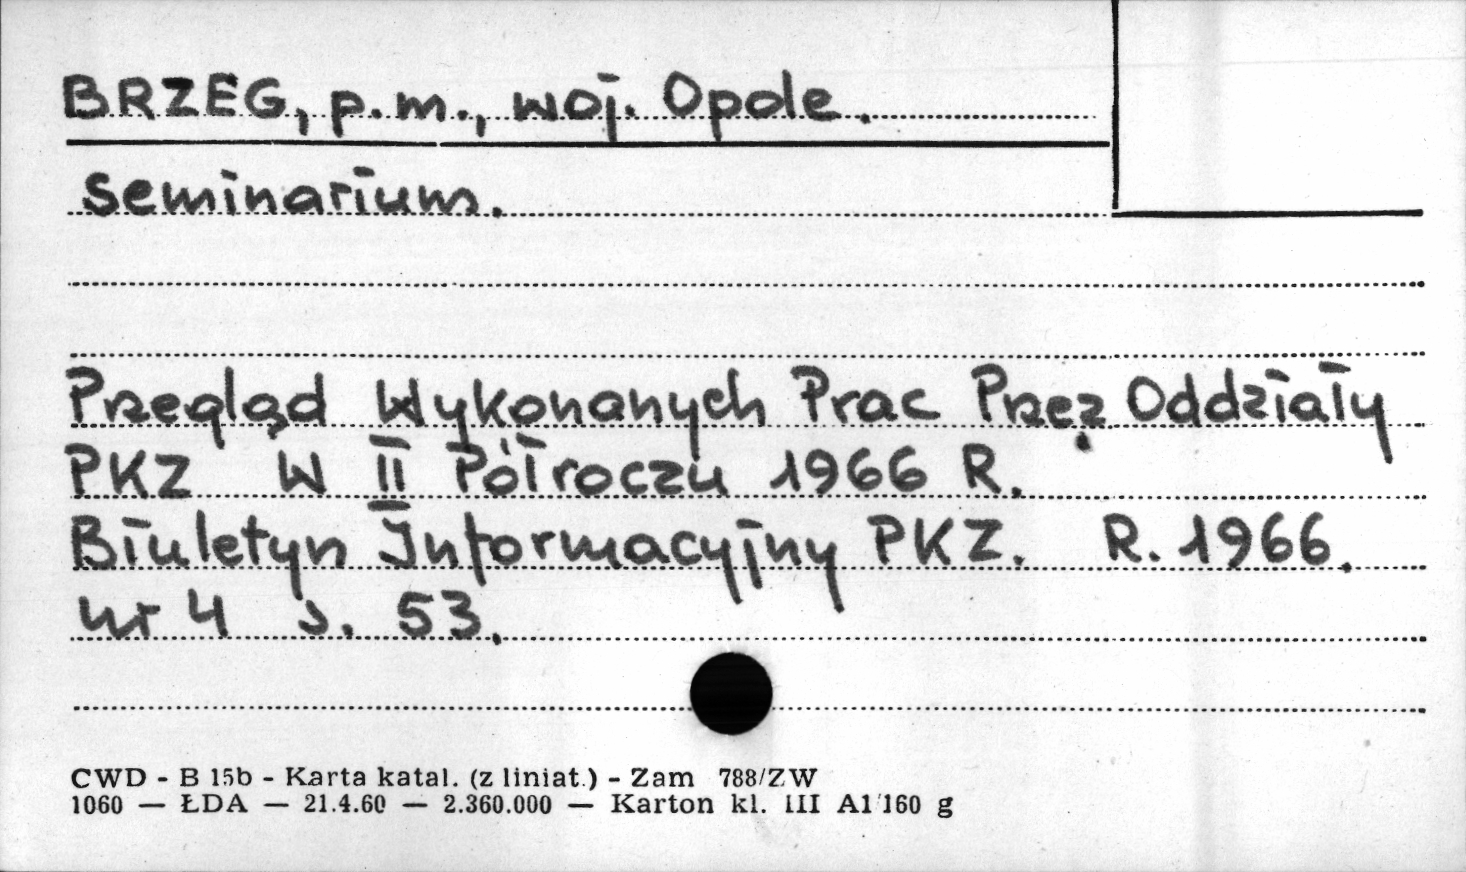 BRZEG, p.m., woj. Opole.
Seminarium.
Przegląd Wykonanych Prac Przez Oddziały
PKZ W II Półroczu 1966 R.
Biuletyn Informacyjny PKZ. R. 1966.
nr 4 s. 53.
CWD - B 15b - Karta katal. (z liniat.) - Zam 788/ZW
1060 — ŁDA — 21.4.60 — 2.360.000 — Karton kl. III A1/160 g